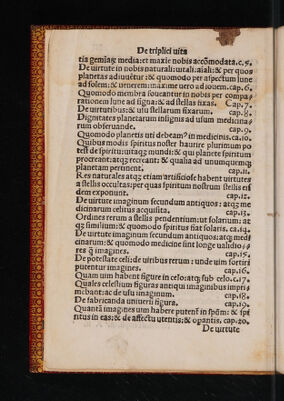 De triplici uita
tia gemina: media: et maxie nobis accōmodata. c. 5.
De uirtute in nobis naturali: uitali: aīali: & per quos
planetas adiuuetur: & quomodo per aspectum lune
ad solem: & uenerem: maxime uero ad iouem. cap. 6.
Quomodo membra foueantur in nobis per compa
rationem lune ad signa: & ad stellas fixas. Cap. 7.
De uirtutibus: & usu stellarum fixarum. cap. 8.
Dignitates planetarum in signis ad usum medicina
rum obseruande. cap. 9.
Quomodo planetis uti debeam' in medicinis. ca. 10.
Quibus modis spiritus noster haurire plurimum po
test de spiritu: uitaqƺ mundi: & qui planete spiritum
procreant: atqƺ recreant: & qualia ad unumquemqƺ
planetam pertinent. cap. 11.
Res naturales atqƺ etiam artificiose habent uirtutes
a stellis occultas: per quas spiritum nostrum stellis eis
dem exponunt. cap. 12.
De uirtute imaginum secundum antiquos: atqƺ me
dicinarum celitus acquisita. cap. 13.
Ordines rerum a stellis pendentium: ut solarium: at
qƺ similium: & quomodo spiritus fiat solaris. ca. 14.
De uirtute imaginum secundum antiquos: atqƺ medi
cinarum: & quomodo medicine sint longe ualidio⸗
res q̄ imagines. cap. 15.
De potestate celi: de uiribus rerum: unde uim sortiri
putentur imagines. cap. 16.
Quam uim habent figure in celo: atqƺ sub celo. c. 17.
Quales celestium figuras antiqui imaginibus impri
mebant: ac de usu imaginum. cap. 18.
De fabricanda uniuersi figura. cap. 19.
Quantā imagines uim habere putent' in spm̄: & spi
ritus in eas: & de affectu utentis: & opantis. cap. 20.
De uirtute